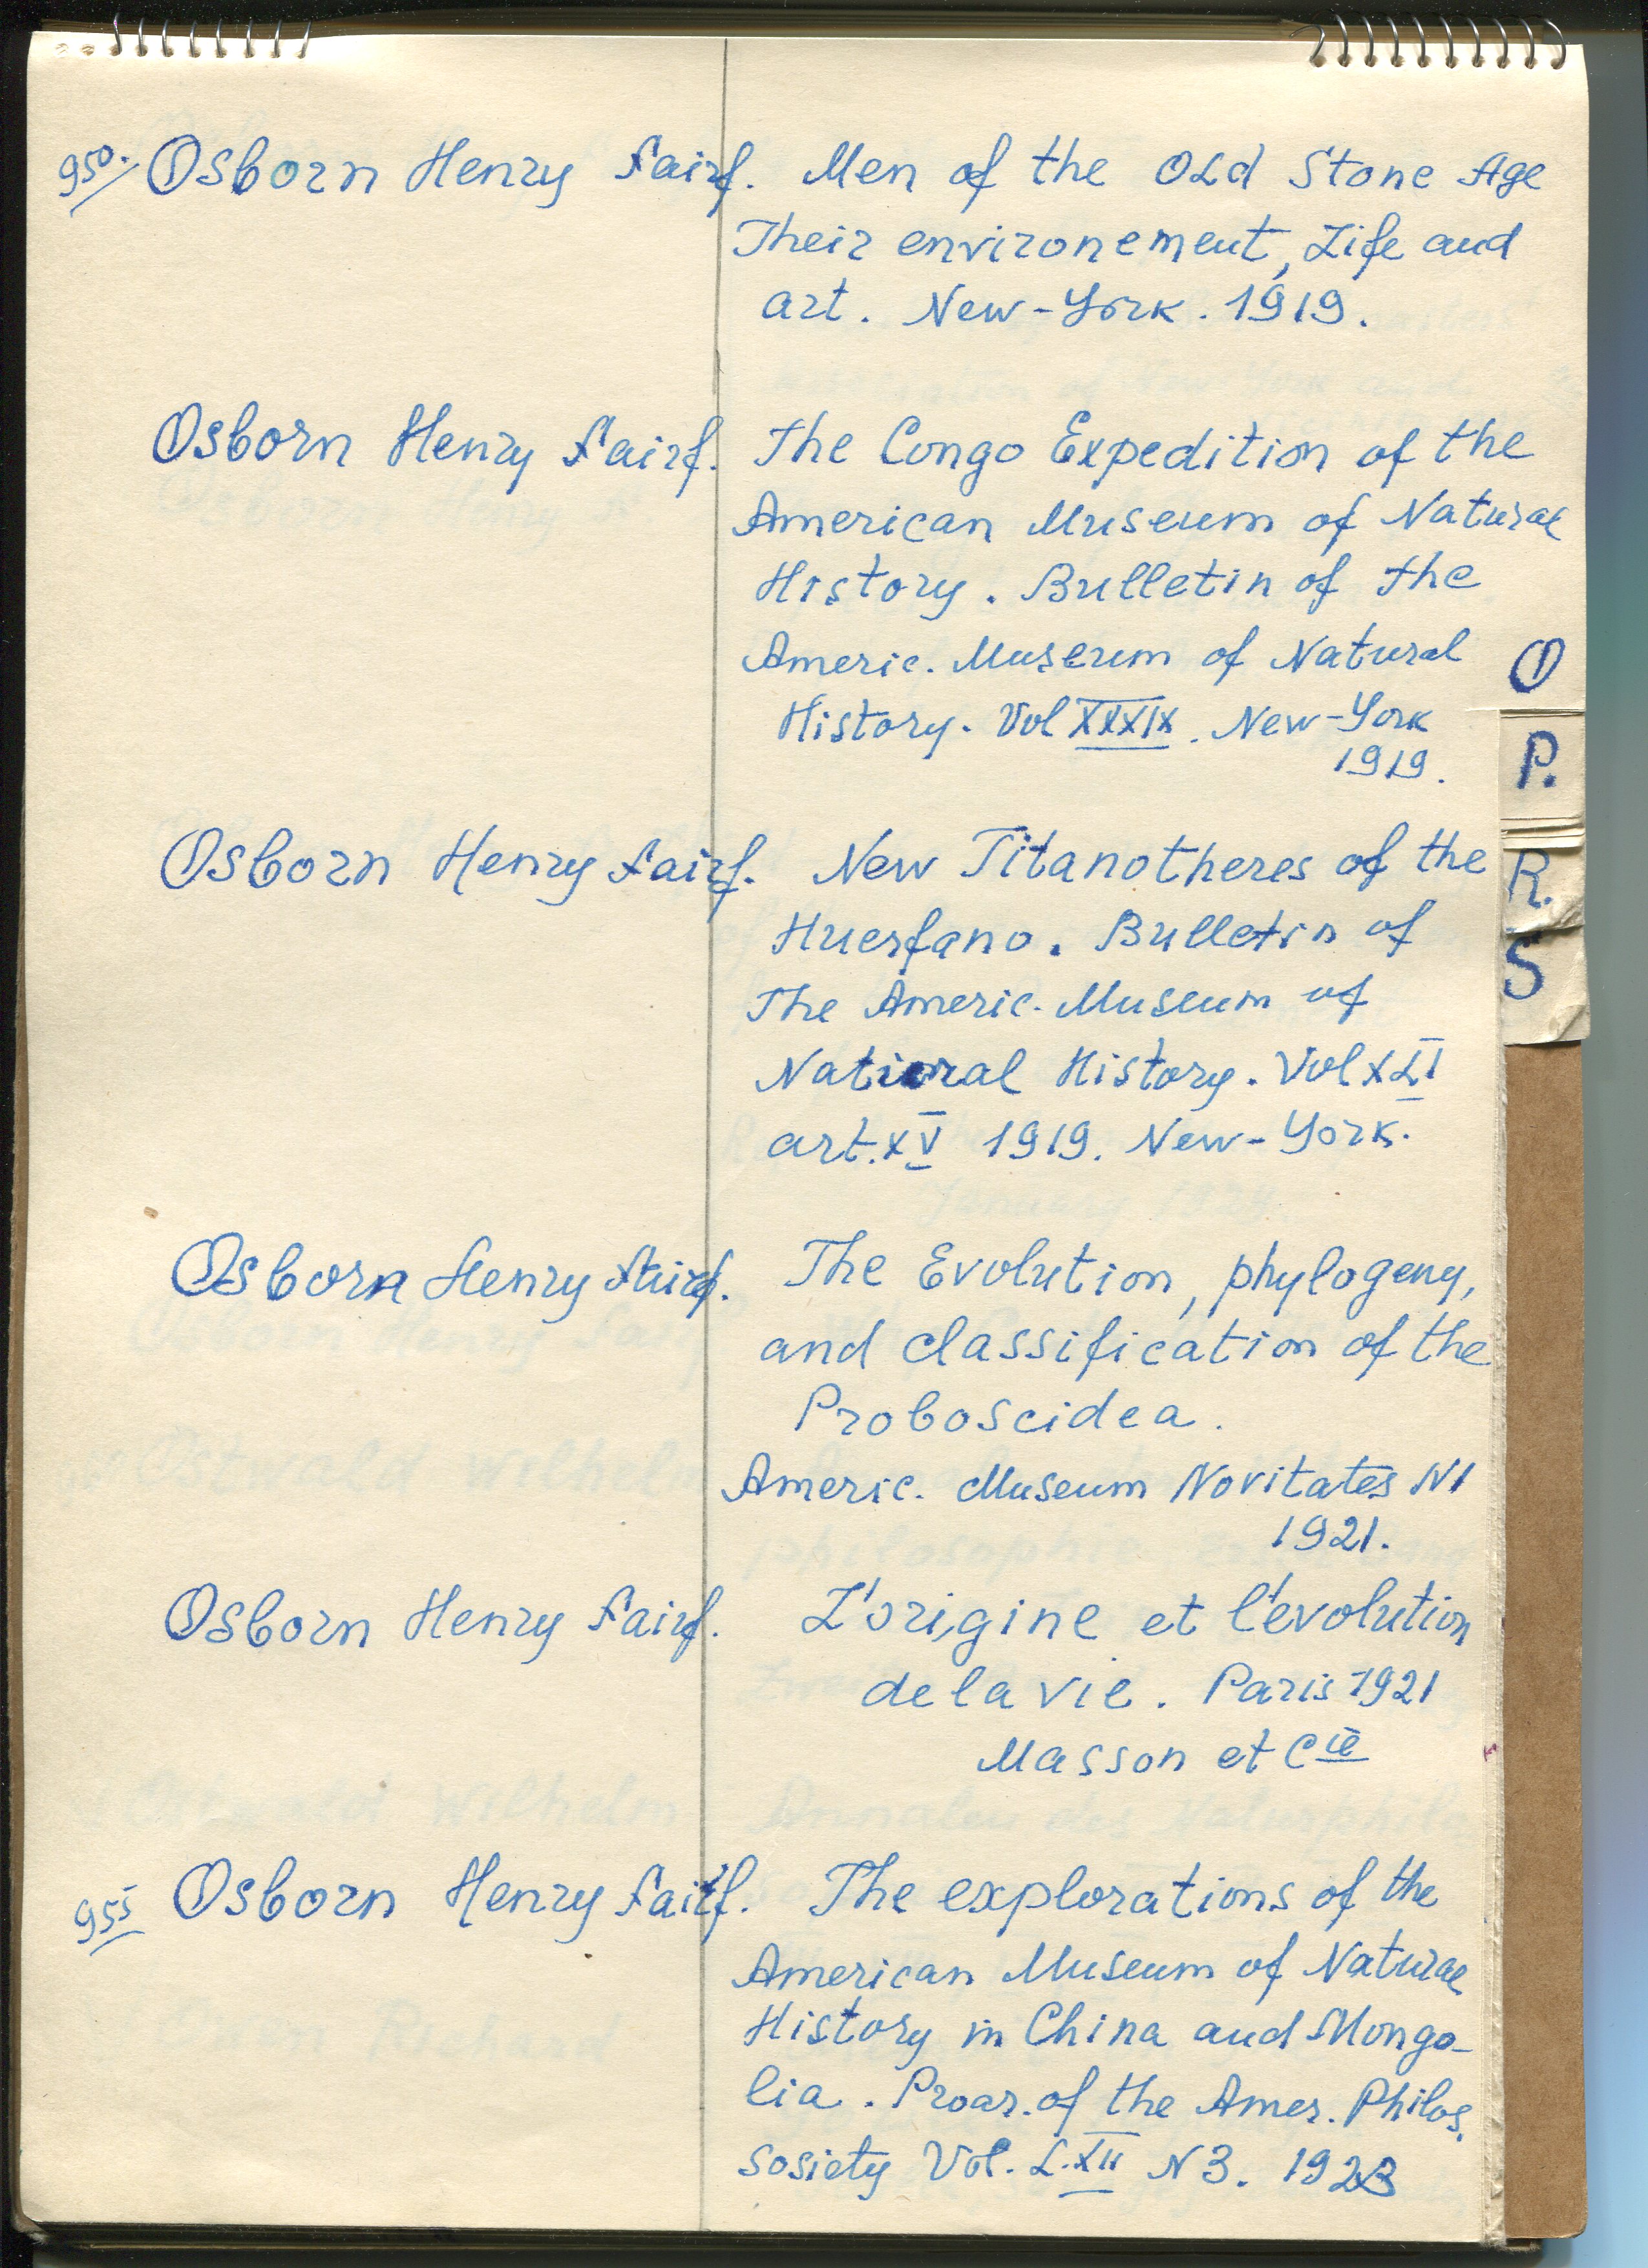 950. Osborn Henry Fairf. Men of the Old Stone Age
Their environement, Life and
art. New-York. 1919.
Osborn Henry Fairf. The Congo Expedition of the
American Museum of Natural
History. Bulletin of the
Americ. Museum of Natural
History. Vol XXXIX. New-York
1919.
O
P.
R.
S
Osborn Henry Fairf. New Titanotheres of the
Huerfano. Bulletin of
The Americ. Museum of
National History. Vol XLI
art. XV 1919. New-York.
Osborn Henry Fairf. The Evolution, phylogeny,
and classification of the
Proboscidea.
Americ. Museum Novitates N1
1921.
Osborn Henry Fairf. L'origine et l'evolution
de la vie. Paris 1921
Masson et Cie
955 Osborn Henry Fairf. The explorations of the
American Museum of Natural
History in China and Mongo-
lia. of the Amer. Philos.
Sosiety Vol. L.XII N3. 1923